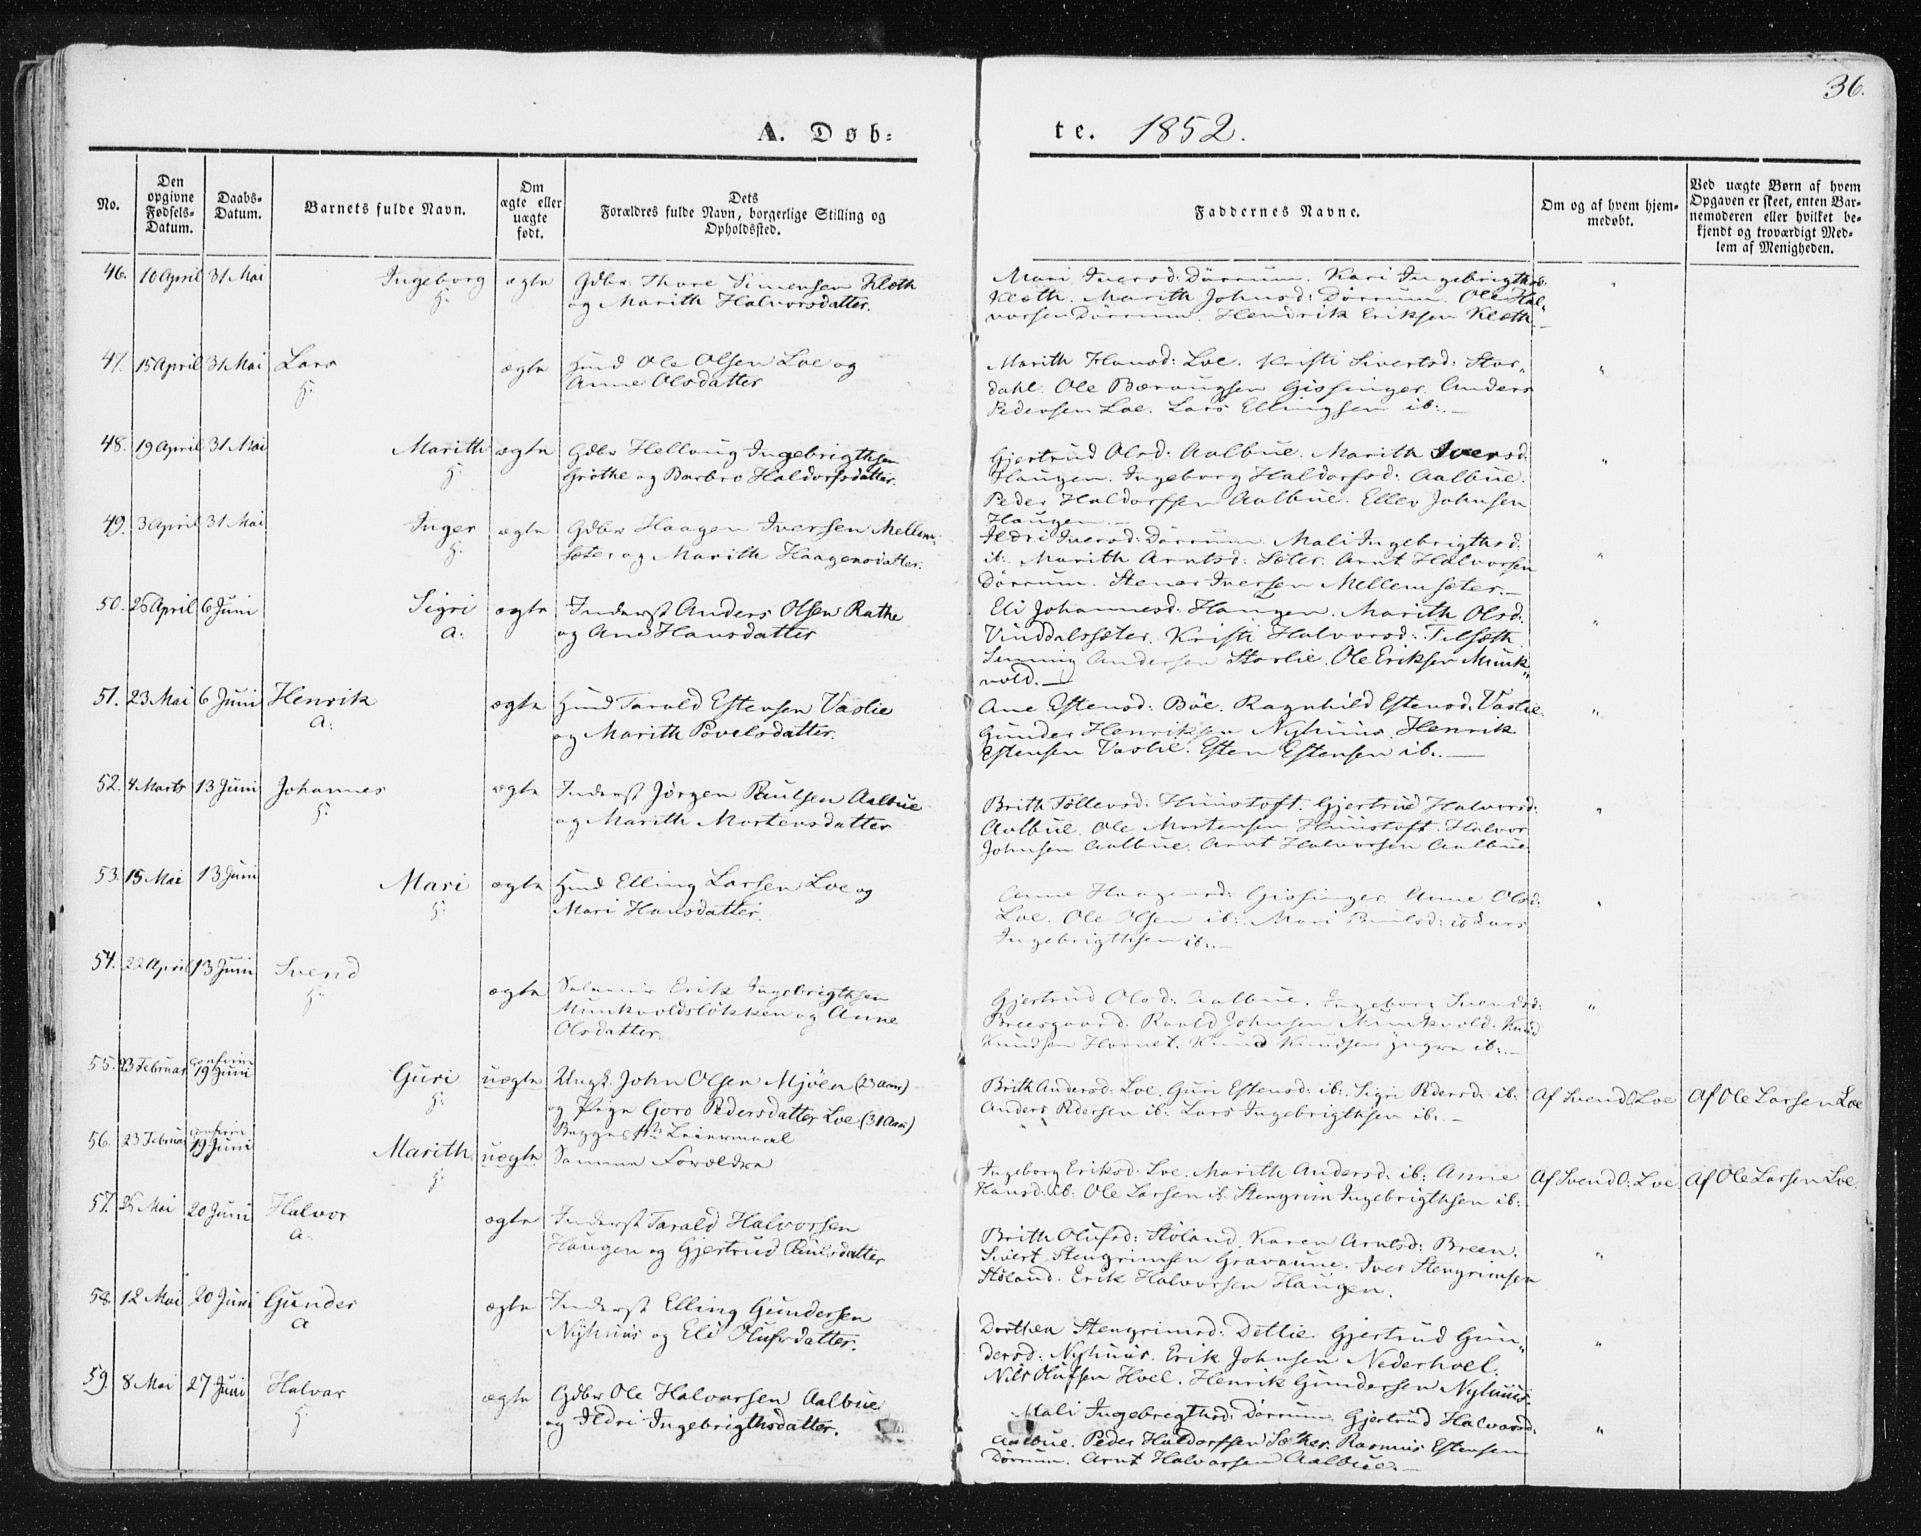 36.
A. Døb-
te. 1852.
No.
Den opgivne Fødsels-Datum.
Daabs-Datum.
Barnets fulde Navn.
Om ægte eller uægte født.
Dets Forældres fulde Navn, borgerlige Stilling og Opholdssted.
Faddernes Navne.
Om og af hvem hjem-medøbt.
Ved uægte Børn af hvem Opgaven er skeet, enten Bar-nemoderen eller hvilket be-kjendt og troværdigt Med-lem af Menigheden.
46. 10 April 31 Mai Ingeborg ægte Gdbr. Thore Simensen Kleth
H: og Marith Halvorsdatter.
Mari Iversd: Dörrum. Kari Ingebrigthsd.
Kleth. Marith Johnsd: Dörrum. Ole Hal-
vorsen Dörrum. Hendrik Eriksen Kleth.
47. 15 April 31 Mai Lars ægte Huusmd Ole Olsen Loe og
H: Anne Olsdatter
Marith Hansd: Loe. Kristi Sivertsd: Stor-
dahl. Ole Bæraugsen Gissinger. Anders
Pedersen Loe. Lars Ellingsen ib:
48. 19 April 31 Mai Marith ægte Gdbr Hellaug Ingebrigthsen
H: Grøthe og Barbro Haldorsdatter.
Gjertrud Olsd: Aalbue. Marith Iversd:
Haugen. Ingeborg Haldorsd: Aalbue.
Peder Haldorssen Aalbue. Ellev Johnsen
Haugen.
49. 3 April 31 Mai Inger ægte Gdbr Haagen Iversen Mellem-
H: sæter og Marith Haagensdatter.
Ildri Iversd: Dörrum. Mali Ingebrigthsd:
ib: Marith Arntsd: Sæter. Arnt Halvorsen
Dörrum. Stener Iversen Mellemsæter.
50. 25 April 6 Juni Sigri ægte Inderst Anders Olsen Rathe
A: og Ane Hansdatter
Eli Johannesd: Haugen. Marith Olsd:
Vinddalssæter. Kristi Halvorsd: Tilseth
Andersen Storlie. Ole Eriksen Munk-
vold.
51. 23 Mai 6 Juni Henrik ægte Huusmd Tarald Estensen Vaslie
A: og Marith Povelsdatter.
Ane Estensd: Böe. Ragnhild Estensd. Vaslie.
Gunder Henriksen Nyhuus. Henrik
Estensen Vaslie. Esten Estensen ib.
52. 4 Marts 13 Juni Johannes ægte Inderst Jörgen Paulsen Aalbue
H: og Marith Mortensdatter
Brith Tollevsd: Huustoft. Gjertrud Halvorsd:
Aalbue. Ole Mortensen Huustoft. Halvor
Johnsen Aalbue. Arnt Halvorsen Aalbue
53. 15 Mai 13 Juni Mari ægte Huusmd Elling Larsen Loe og
H: Mari Hansdatter.
Anne Haagensd: Gissinger. Anne Olsd:
Loe. Ole Olsen ib: Mari ib Lars
Ingebrigthsen ib:
54. 22 April 13 Juni Svend ægte Erik Ingebrigthsen
H: Munkvoldsløkken og Anne
Olsdatter.
Gjertrud Olsd: Aalbue. Ingeborg Svendsd:
Breesgaard. Roald Johnsen Munkvold. Knud
Knudsen Hornet. Knud Knudsen yngre ib:
55. 23 Februar confirm 19 Juni Guri uægte Ungk. John Olsen Mjöen (23 Aar)
H: og Pige Goro Pedersdatter Loe (31 Aar)
Begges 1ste Leiermaal
Brith Andersd: Loe. Guri Estensd: ib: Sigri Pedersd: ib:
Anders Pedersen ib: Lars Ingebrigthsen ib:
Af Svend O. Loe Af Ole Larsen Loe
56. 23 Februar confirm 19 Juni Marith uægte Samme Forældre
H:
Ingeborg Eriksd: Loe. Marith Andersd: ib: Anne
Hansd: ib: Ole Larsen ib. Stengrim Ingebrigthsen ib:
Af Svend O: Loe Af Ole Larsen Loe.
57. 25 Mai 20 Juni Halvor ægte Inderst Tarald Halvorsen
A: Haugen og Gjertrud Paulsdatter
Brith Olufsd: Stöland. Karen Arntsd: Breen.
Sivert Stengrimsen Gravaune. Iver Stengrimsen
Stöland. Erik Halvorsen Haugen.
58. 12 Mai 20 Juni Gunder ægte Inderst Elling Gundersen
A Nyhuus og Eli Olufsdatter.
Dorthea Stengrimsd: Detlie. Gjertrud Gun-
dersd: Nyhuus. Erik Johnsen Nederhoel.
Nils Olufsen Hoel. Henrik Gundersen Nyhuus.
59. 8 Mai 27 Juni Halvor ægte Gdbr Ole Halvorsen Aalbue
H: og Ildri Ingebrigthsdatter.
Mali Ingebregthsd: Dörrum. Gjertrud Halvorsd.
Aalbue. Peder Haldorssen Sæther. Rasmus Estensen
Dörrum. Arnt Halvorsen Aalbue.